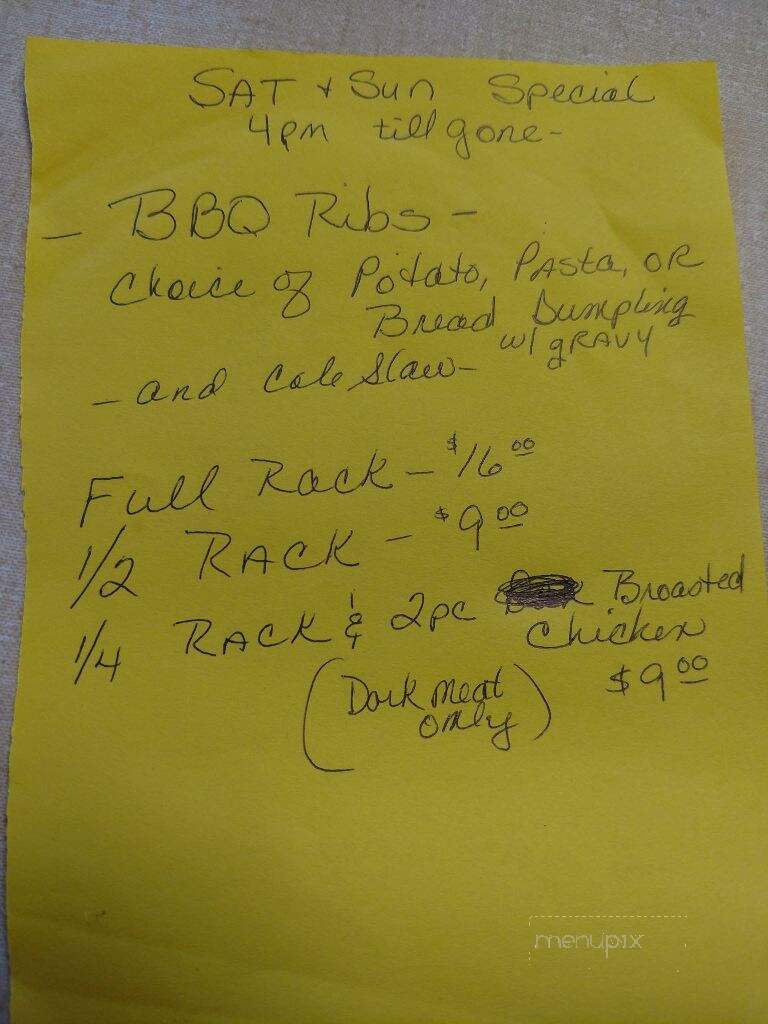 SAT + Sun Special
4pm till gone-
- BBQ Ribs -
Choice of Potato, PASta, OR
Bread Dumpling
w/ gRAVY
- and Cole Slaw-
Full Rack - $16 00
1/2 RACK - $9 00
1/4 RACK & 2pc Broasted
Chicken
(Dark meat only) $9 00
menupix